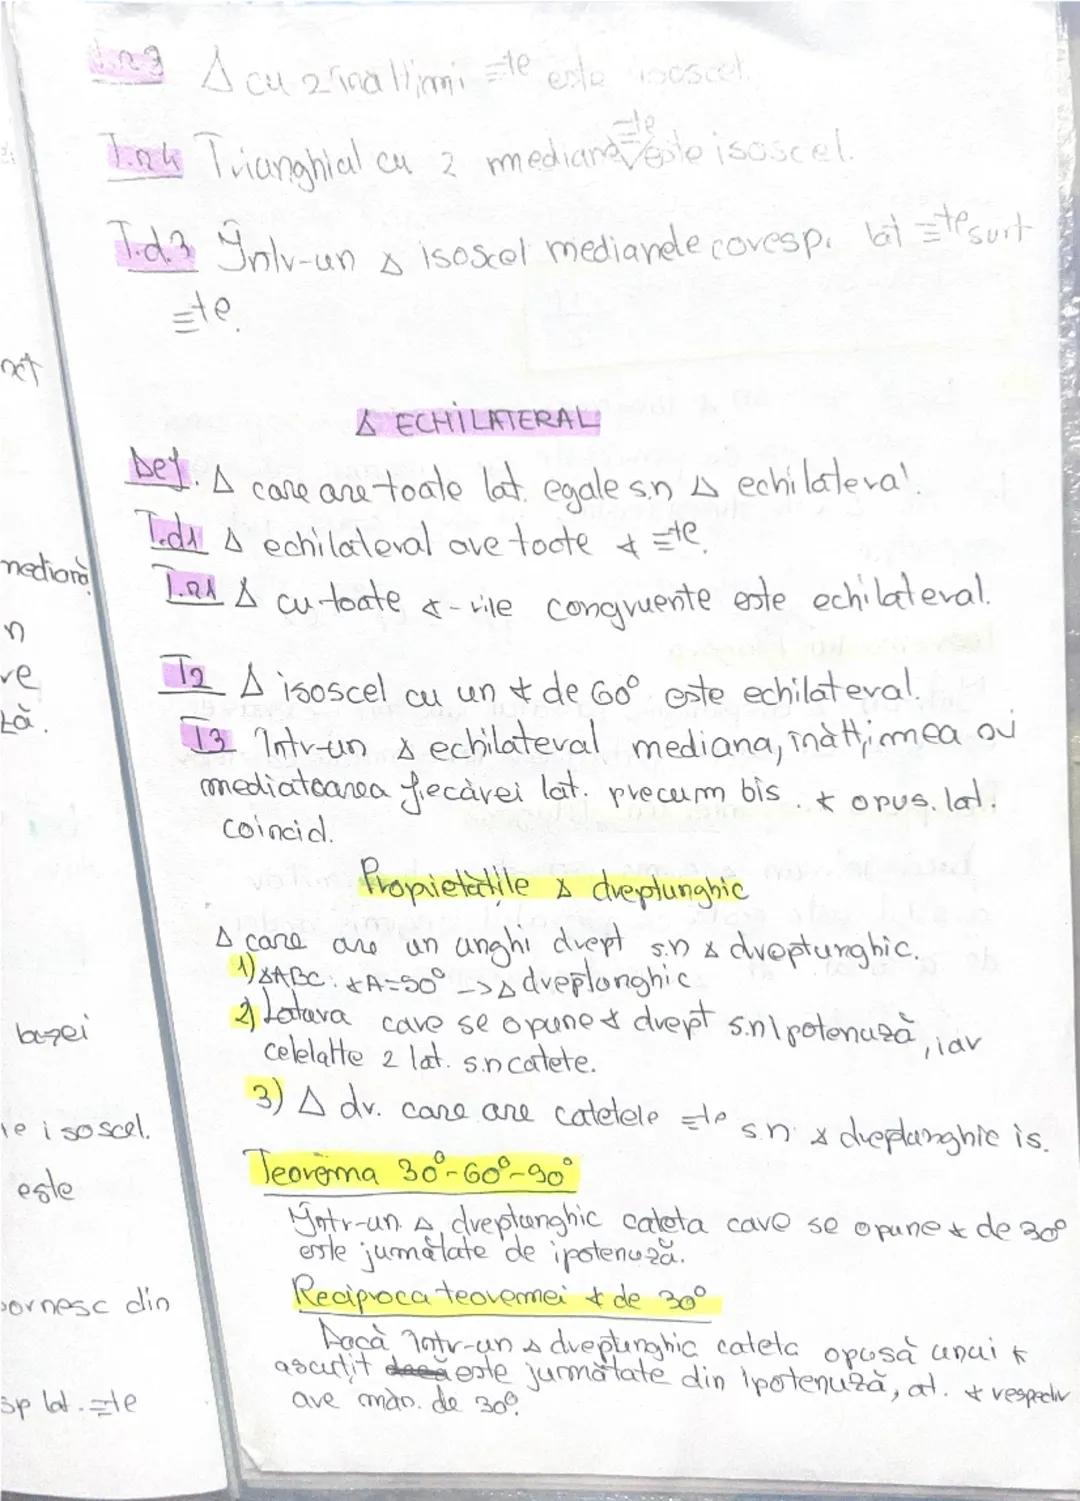 T.R3 Δ cu 2 înălțimi ≡te este isoscel.
T.R4 Triunghiul cu 2 mediane ≡te este isoscel.
T.d.3 Într-un Δ isoscel medianele coresp. lat ≡te sunt
≡te.
Δ ECHILATERAL
Def. Δ care are toate lat. egale s.n Δ echilateral.
T.d1 Δ echilateral are toate ∢ ≡te.
T.R1 Δ cu toate ∢-rile congruente este echilateral.
T2 Δ isoscel cu un ∢ de 60° este echilateral.
T3 Într-un Δ echilateral mediana, înălțimea și
mediatoarea fiecărei lat. precum bis. ∢ opus. lat.
coincid.
Proprietățile Δ dreptunghic
Δ care are un unghi drept s.n Δ dreptunghic.
1) ΔABC: ∢A=90° -> Δ dreptunghic
2) Latura care se opune ∢ drept s.n ipotenuză, iar
celelalte 2 lat. s.n catete.
3) Δ dr. care are catetele ≡te s.n. Δ dreptunghic is.
Teorema 30°-60°-90°
Într-un Δ dreptunghic cateta care se opune ∢ de 30°
este jumătate de ipotenuză.
Reciproca teoremei ∢ de 30°
Dacă într-un Δ dreptunghic cateta opusă unui ∢
ascuțit este jumătate din ipotenuză, at. ∢ respectiv
are măs. de 30°.
mediană
n
re
tă.
bazei
te isoscel.
este
pornesc din
sp lat. ≡te